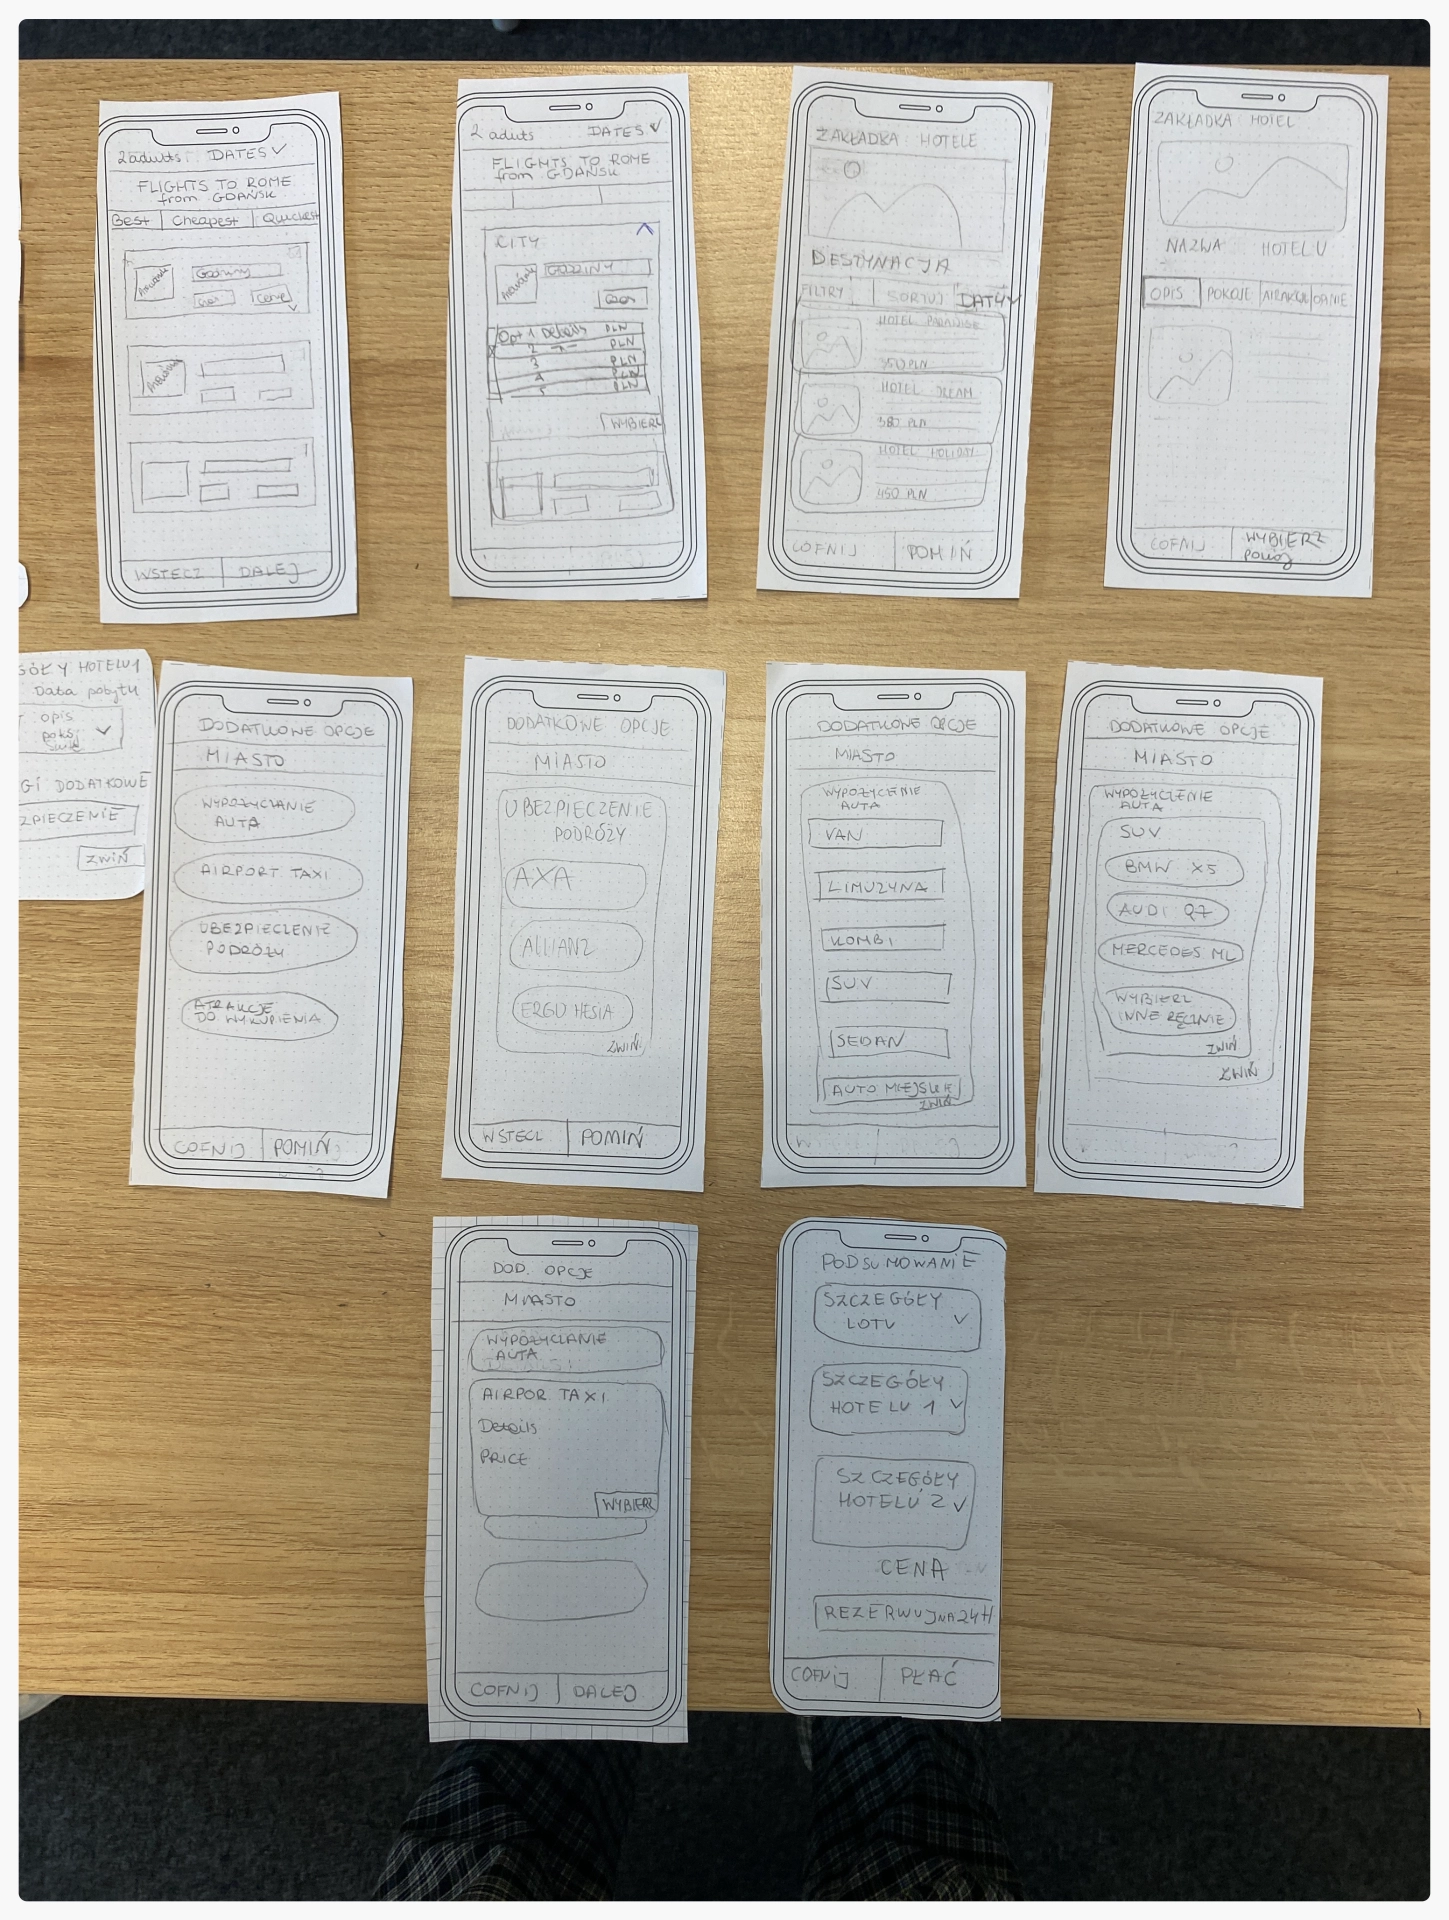 2 aduts DATES
FLIGHTS TO ROME
from GDAŃSK
Best Cheapest Quickest
Godziny
Cena
WSTECZ DALEJ
2 aduts DATES
FLIGHTS TO ROME
from GDAŃSK
CITY
GODZINY
Opt 1 Details PLN
2 PLN
3 PLN
4 PLN
5 PLN
WYBIERZ
ZAKŁADKA HOTELE
DESTYNACJA
FILTRY SORTUJ DATY
HOTEL PARADISE
350 PLN
HOTEL DREAM
380 PLN
HOTEL HOLIDAY
450 PLN
COFNIJ POMIŃ
ZAKŁADKA HOTEL
NAZWA HOTELU
OPIS POKOJE
COFNIJ WYBIERZ
GÓŁY HOTELU 1
Data pobytu
opis
GI DODATKOWE
ZPIECZENIE
ZWIŃ
DODATKOWE OPCJE
MIASTO
WYPOŻYCZANIE
AUTA
AIRPORT TAXI
UBEZPIECZENIE
PODRÓŻY
ATRAKCJE
DO WYKUPIENIA
COFNIJ POMIŃ
DODATKOWE OPCJE
MIASTO
UBEZPIECZENIE
PODRÓŻY
AXA
ALLIANZ
ERGO HESIA
ZWIŃ
WSTECZ POMIŃ
DODATKOWE OPCJE
MIASTO
WYPOŻYCZENIE
AUTA
VAN
LIMUZYNA
KOMBI
SUV
SEDAN
AUTO MIEJSKIE
ZWIŃ
DODATKOWE OPCJE
MIASTO
WYPOŻYCZENIE
AUTA
SUV
BMW X5
AUDI Q7
MERCEDES ML
WYBIERZ
INNE RĘCZNIE
ZWIŃ
ZWIŃ
DOD. OPCJE
MIASTO
WYPOŻYCZANIE
AUTA
AIRPOR TAXI
Details
PRICE
WYBIERZ
COFNIJ DALEJ
PODSUMOWANIE
SZCZEGÓŁY
LOTU
SZCZEGÓŁY
HOTELU 1
SZCZEGÓŁY
HOTELU 2
CENA
REZERWUJ NA 24H
COFNIJ PŁAĆ